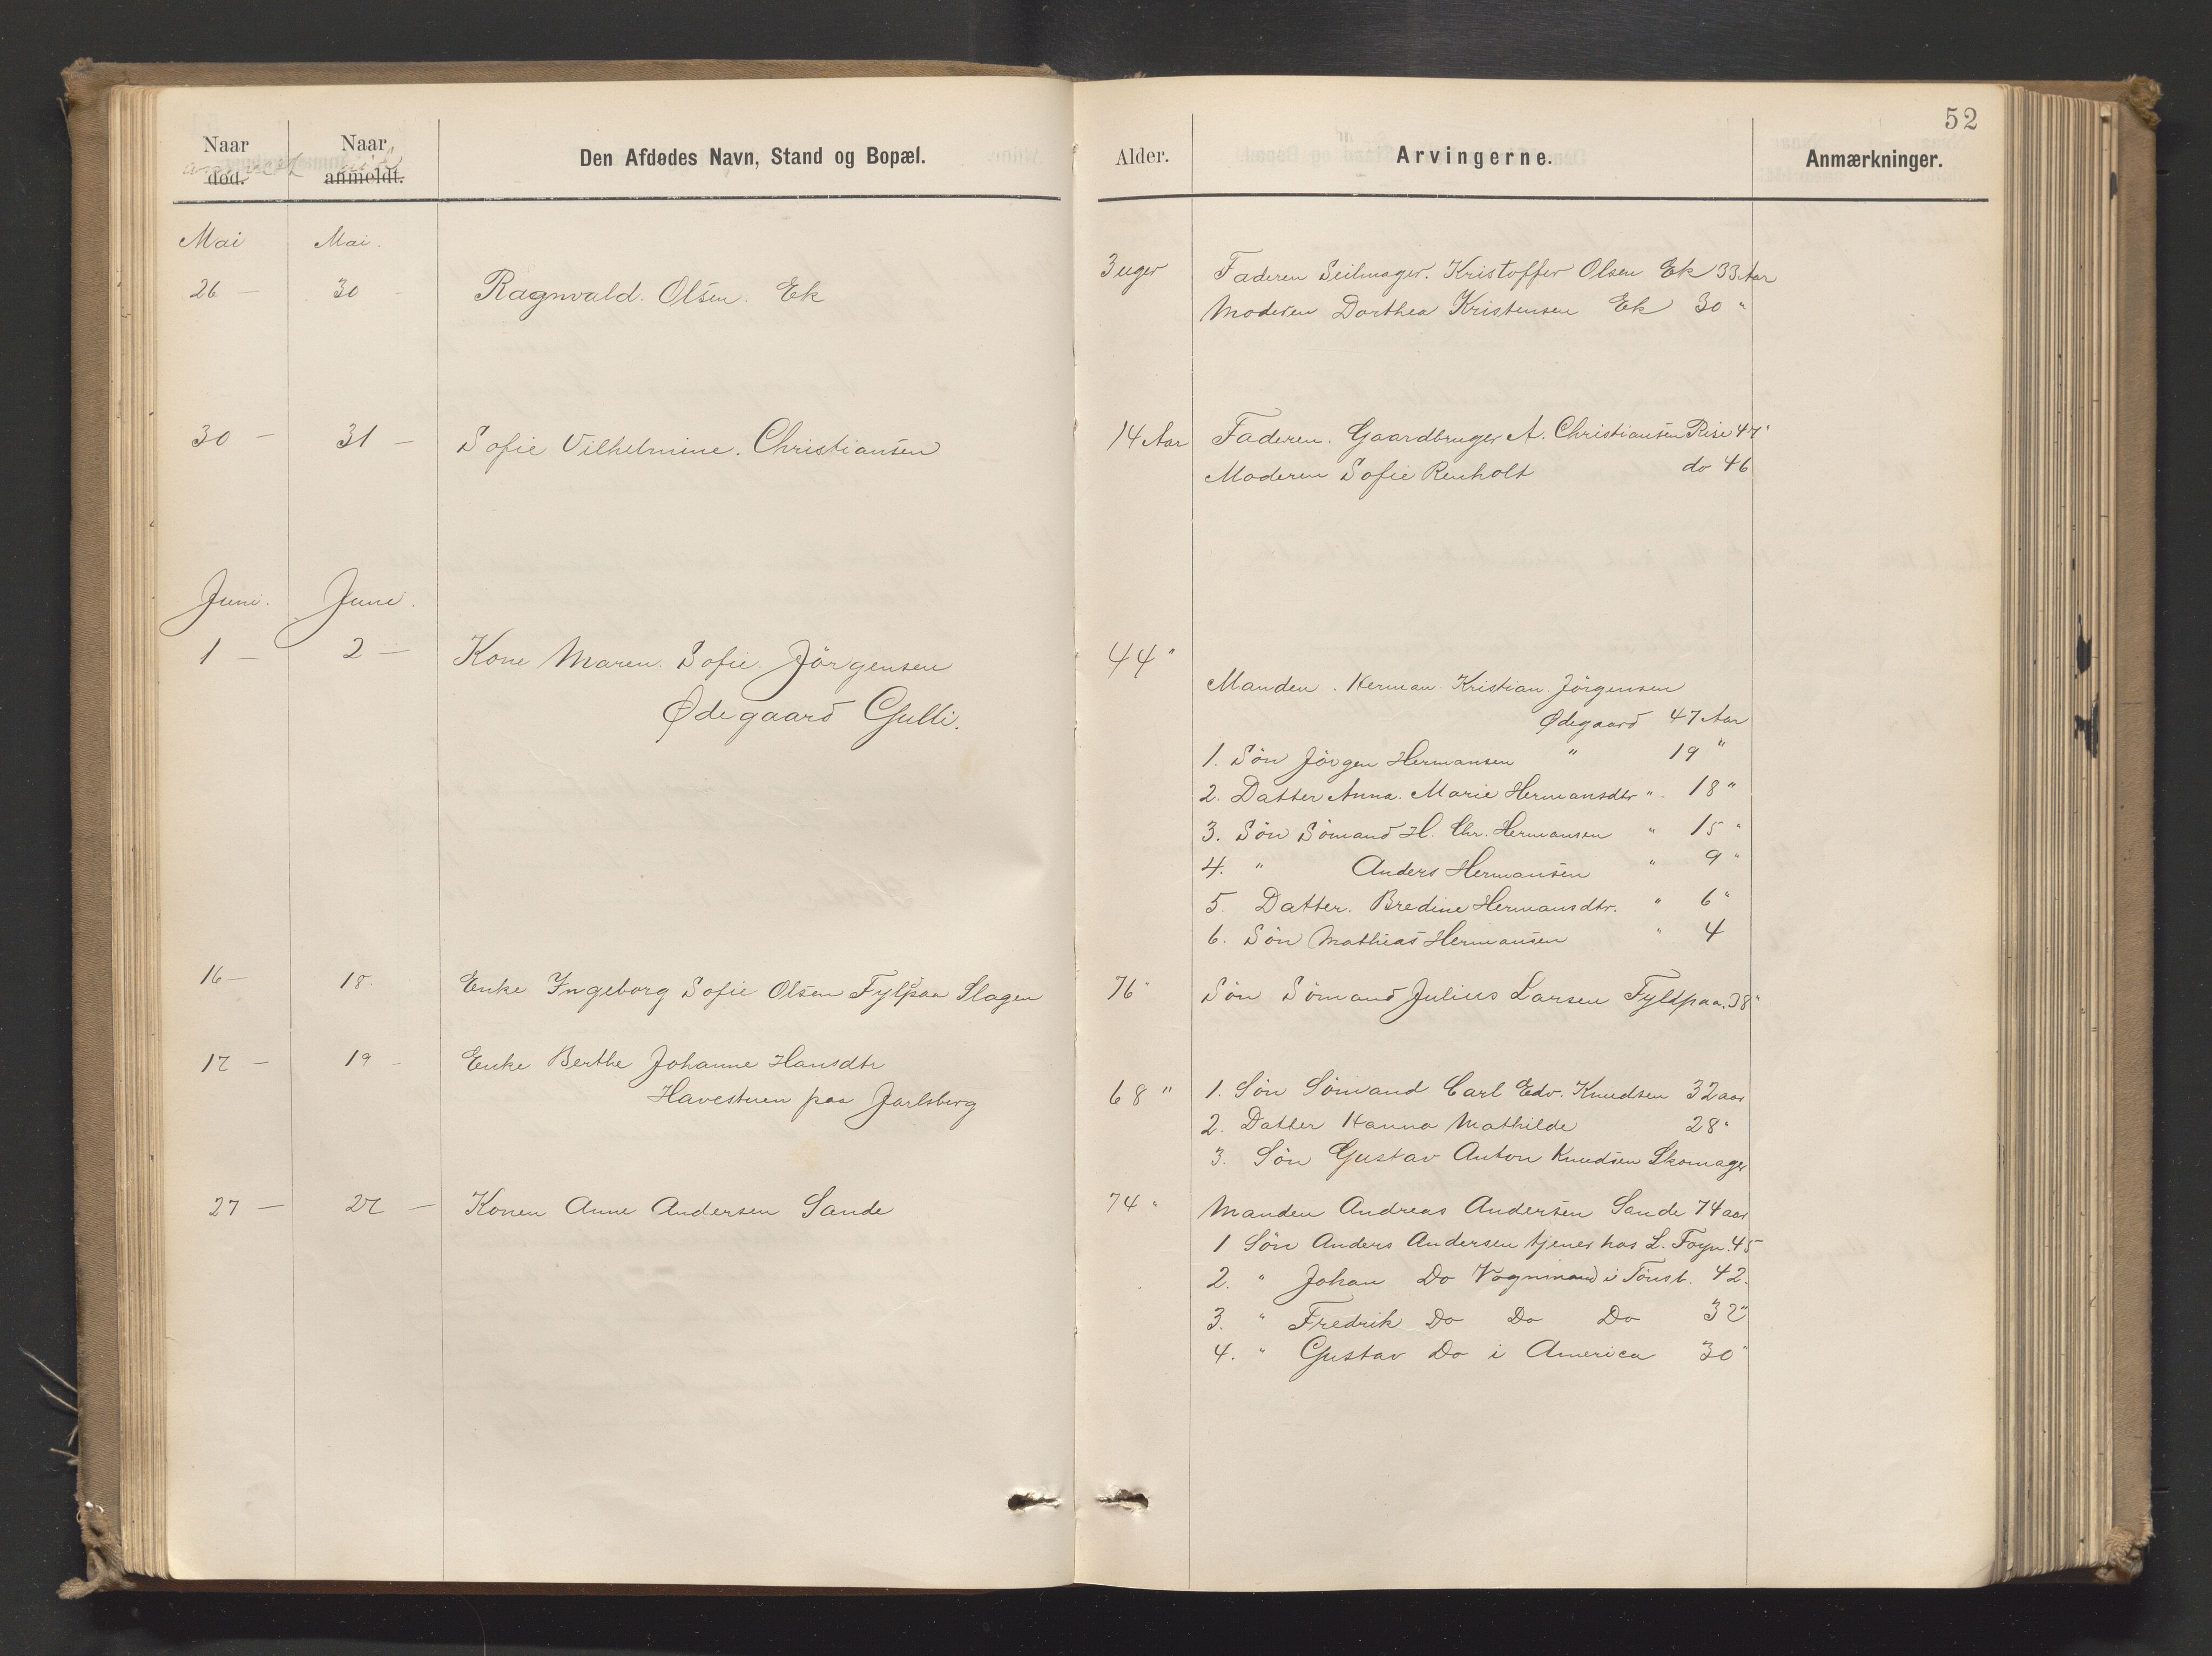 52
Naar død.
Naar anmeldt.
Den Afdødes Navn, Stand og Bopæl.
Alder.
Arvingerne.
Anmærkninger.
Mai Mai.
26 — 30 — Ragnvald. Olsen. Ek
3 uger Faderen Seilmager. Kristoffer Olsen Ek 33 Aar
Moderen Dorthea Kristensen Ek 30 "
30 — 31 — Sofie Vilhelmine. Christiansen
14 Aar Faderen. Gaardbruger A. Christiansen Rise 47 "
Moderen Sofie Renholt do 46
Juni. Juni.
1 — 2 — Kone Maren. Sofie. Jörgensen
Ødegaard Gulli.
44 "
Manden. Herman Kristian Jörgensen
Ødegaard 47 Aar
1. Sön Jörgen Hermansen " 19 "
2. Datter Anna. Marie Hermansdtr " 18 "
3. Sön Sömand H. Chr. Hermansen " 15 "
4. " Anders Hermansen " 9 "
5. Datter. Bredine Hermansdtr. " 6 "
6. Sön Mathias Hermansen " 4
16 — 18. Enke Ingeborg Sofie Olsen Fylpaa Slagen
76 " Sön Sömand Julius Larsen Fyldpaa. 38 "
17 — 19 — Enke Berthe Johanne Hansdtr
Havestuen paa Jarlsberg
68 " 1. Sön Sömand Carl Edv. Knudsen 32 aar
2. Datter Hanna Mathilde 28 "
3. Sön Gustav Anton Knudsen Skomager
27 — 27 — Konen Anne Andersen Sande
74 " Manden Andreas Andersen Sande 74 aar
1 Sön Anders Andersen tjener hos L. Foyn. 45
2. " Johan Do Vognmand i Tönsb. 42.
3. " Fredrik Do Do Do 32 "
4. " Gustav Do i America 30 "